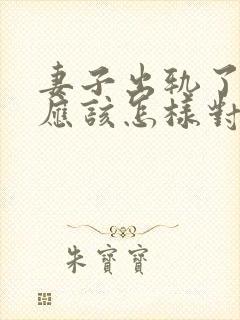 妻子出轨了
应该怎樣對
朱寶寶